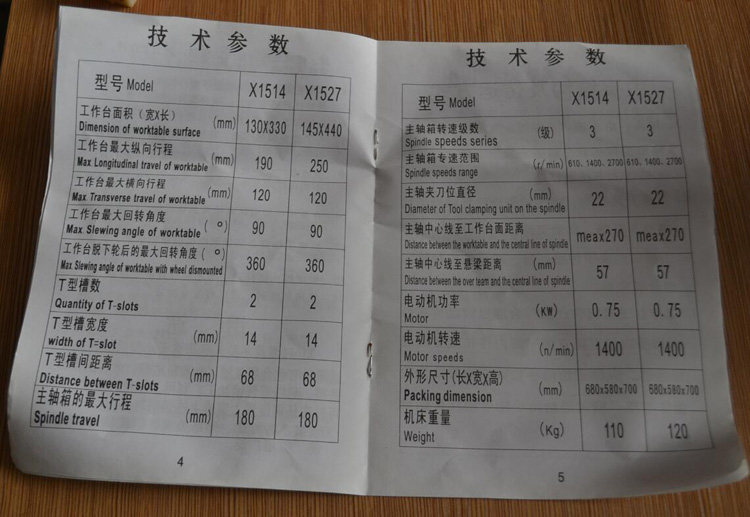 技术参数
型号 Model X1514 X1527
工作台面积（宽X长）
Dimension of worktable surface (mm) 130X330 145X440
工作台最大纵向行程
Max Longitudinal travel of worktable (mm) 190 250
工作台最大横向行程
Max Transverse travel of worktable (mm) 120 120
工作台最大回转角度
Max Slewing angle of worktable ( o) 90 90
工作台脱下轮后的最大回转角度 ( o)
Max Slewing angle of worktable with wheel dismounted 360 360
T型槽数
Quantity of T-slots 2 2
T型槽宽度
width of T=slot (mm) 14 14
T型槽间距离
Distance between T-slots (mm) 68 68
主轴箱的最大行程
Spindle travel (mm) 180 180
4
技术参数
型号 Model X1514 X1527
主轴箱转速级数
Spindle speeds series (级) 3 3
主轴箱专速范围
Spindle speeds range (r/min) 610、1400、2700 610、1400、2700
主轴夹刀位直径 (mm)
Diameter of Tool clamping unit on the spindle 22 22
主轴中心线至工作台面距离
Distance between the worktable and the central line of spindle meax270 meax270
主轴中心线至悬梁距离 (mm)
Distance between the over team and the central line of spindle 57 57
电动机功率
Motor (KW) 0.75 0.75
电动机转速
Motor speeds (n/min) 1400 1400
外形尺寸(长X宽X高)
Packing dimension (mm) 680x580x700 680x580x700
机床重量
Weight (Kg) 110 120
5